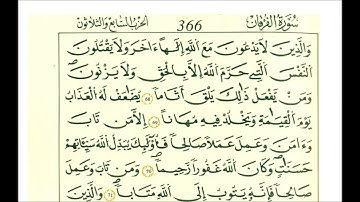 سُورَةُ الفُرْقَان 366 الحزب السابع والثلاثون
وَالذِينَ لَا يَدْعُونَ مَعَ اَللَّهِ إِلَٰهاً اٰخَرَ وَلَا يَقْتُلُونَ
اَلنَّفْسَ اَلتِي حَرَّمَ اَللَّهُ إِلَّا بِالْحَقِّ وَلَا يَزْنُونَ
وَمَنْ يَّفْعَلْ ذَٰلِكَ يَلْقَ أَثَاماً يُضَٰعَفْ لَهُ اُلْعَذَابُ
يَوْمَ اَلْقِيَٰمَةِ وَيَخْلُدْ فِيهِ مُهَاناً إِلَّا مَن تَابَ
وَءَامَنَ وَعَمِلَ عَمَلاً صَٰلِحاً فَأُوْلَٰئِكَ يُبَدِّلُ اُللَّهُ سَيِّـَٔاتِهِمْ
حَسَنَٰتٍ وَكَانَ اَللَّهُ غَفُوراً رَّحِيماً وَمَن تَابَ وَعَمِلَ
صَٰلِحاً فَإِنَّهُ يَتُوبُ إِلَى اَللَّهِ مَتَاباً وَالذِينَ